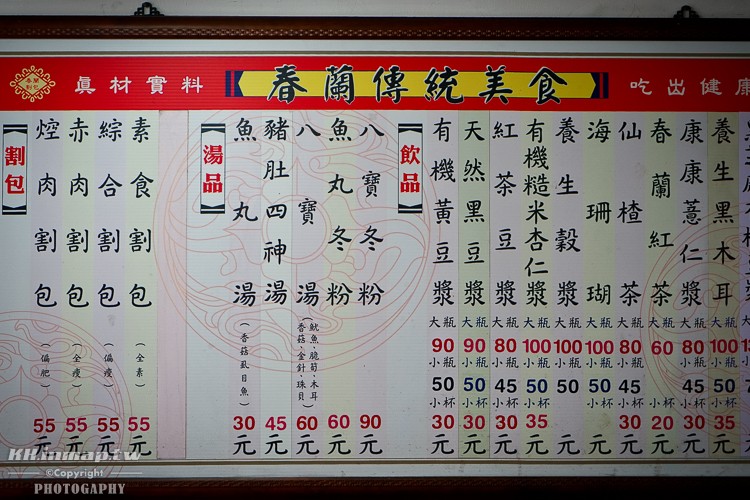 真材實料
春蘭傳統美食
吃出健康
割包
焢肉割包(偏肥)55元
赤肉割包(全瘦)55元
綜合割包(偏瘦)55元
素食割包(全素)55元
湯品
魚丸湯(香菇虱目魚)30元
豬肚四神湯45元
八寶湯(魷魚、脆筍、木耳香菇、金針、珠貝)60元
魚丸冬粉60元
八寶冬粉90元
飲品
有機黃豆漿大瓶90小瓶50小杯30元
天然黑豆漿大瓶90小瓶50小杯30元
紅茶豆漿大瓶80小瓶45小杯30元
有機糙米杏仁漿大瓶100小瓶50小杯35元
養生穀漿大瓶100小瓶50元
海珊瑚大瓶100小瓶50元
仙楂茶大瓶80小瓶45小杯30元
春蘭紅茶大瓶60小杯20元
康康薏仁漿大瓶80小瓶45小杯30元
養生黑木耳大瓶100小瓶50小杯35元
KKinmap.tw
©Copyright
PHOTOGAPHY